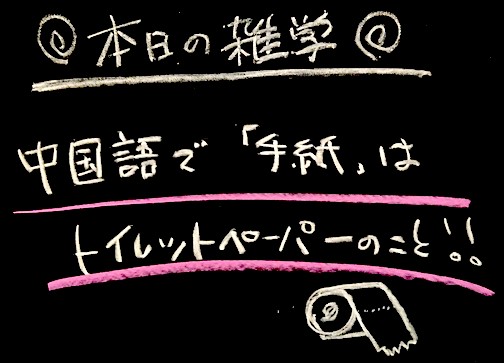 本日の雑学
中国語で「手紙」は
トイレットペーパーのこと!!